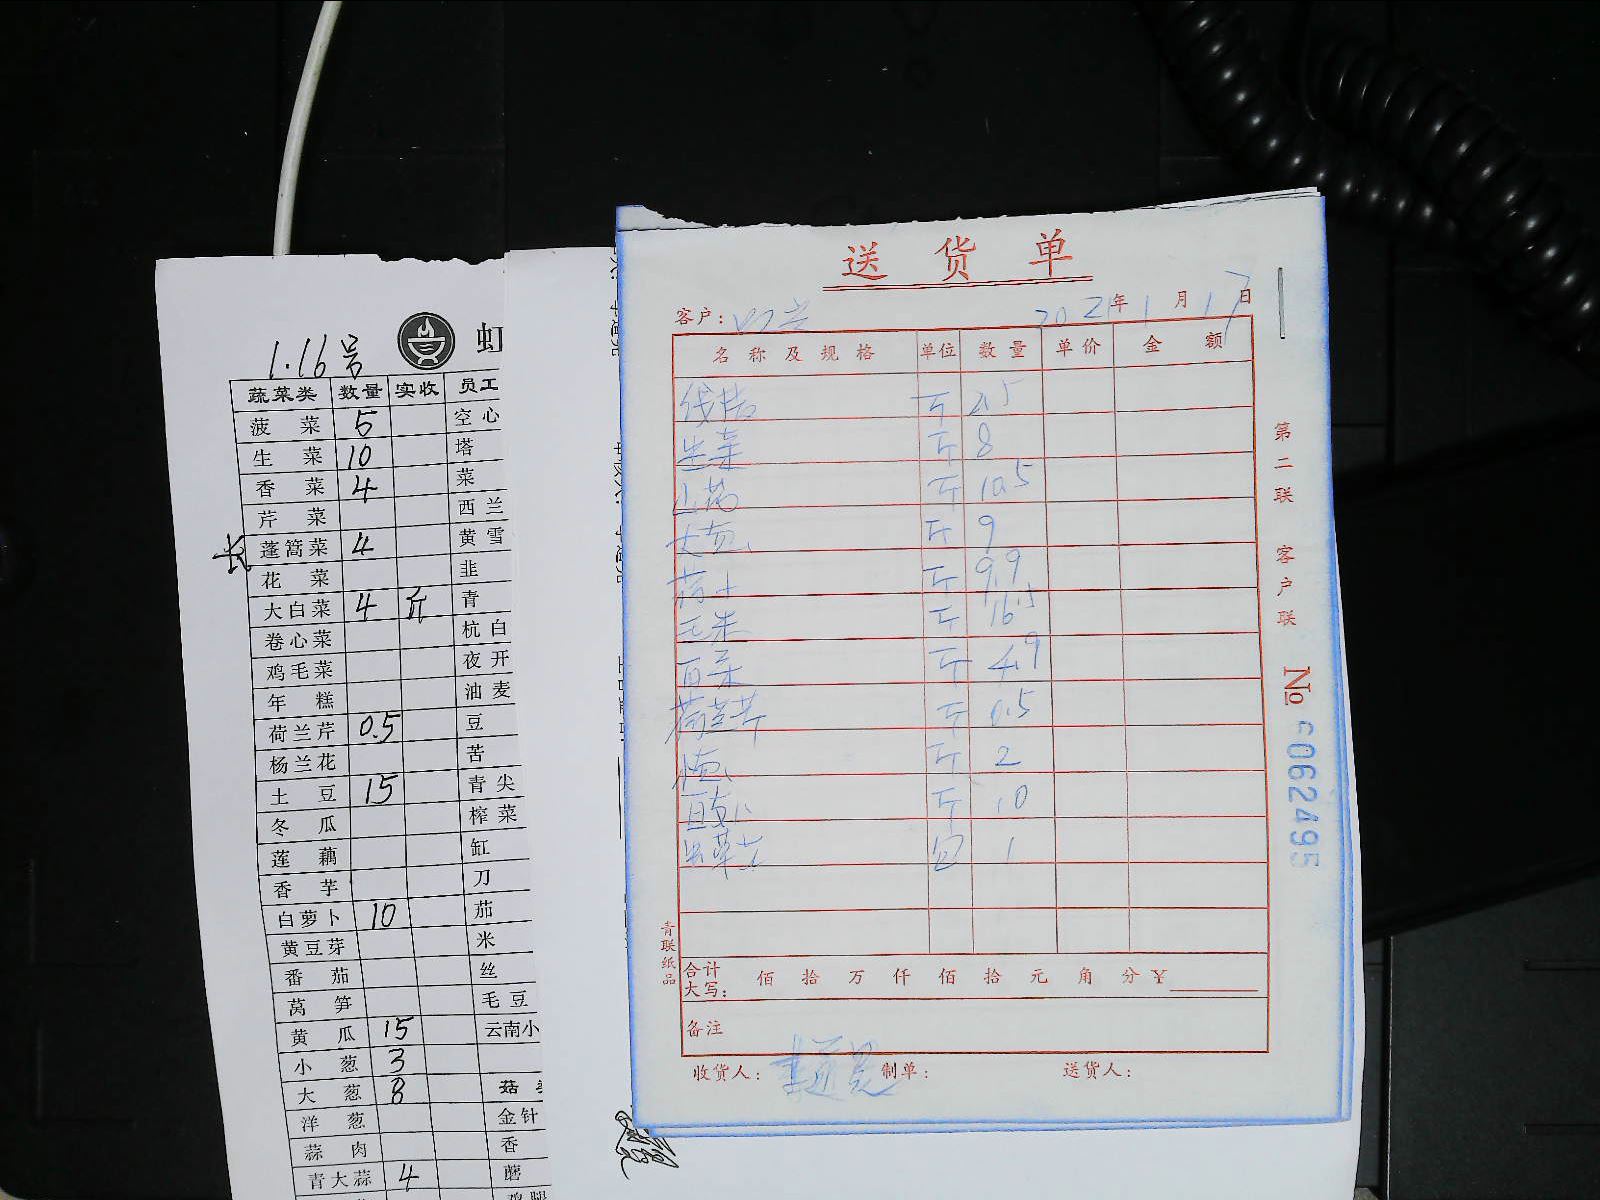 1.16号
虹
蔬菜类 数量 实收 员工
菠菜 5 空心
生菜 10 塔
香菜 4 菜
芹菜 西兰
长 蓬篙菜 4 黄雪
花菜 韭
大白菜 4 斤 青
卷心菜 杭白
鸡毛菜 夜开
年糕 油麦
荷兰芹 0.5 豆
杨兰花 苦
土豆 15 青尖
冬瓜 榨菜
莲藕 缸
香芋 刀
白萝卜 10 茄
黄豆芽 米
番茄 丝
莴笋 毛豆
黄瓜 15 云南小
小葱 3
大葱 8 菇
洋葱 金针
蒜肉 香
青大蒜 4 蘑
鸡腿
送货单
客户: 2021年1月17日
名称及规格 单位 数量 单价 金额
斤
生菜 斤 8
山药 斤 10.5
大葱 斤 9
斤 9.9
斤 16.5
斤 4.9
荷兰芹 斤 0.5
斤 2
斤 10
包 1
合计
大写: 佰拾万仟佰拾元角分¥
备注
收货人: 制单: 送货人:
青联纸品
第二联 客户联
No 6062495